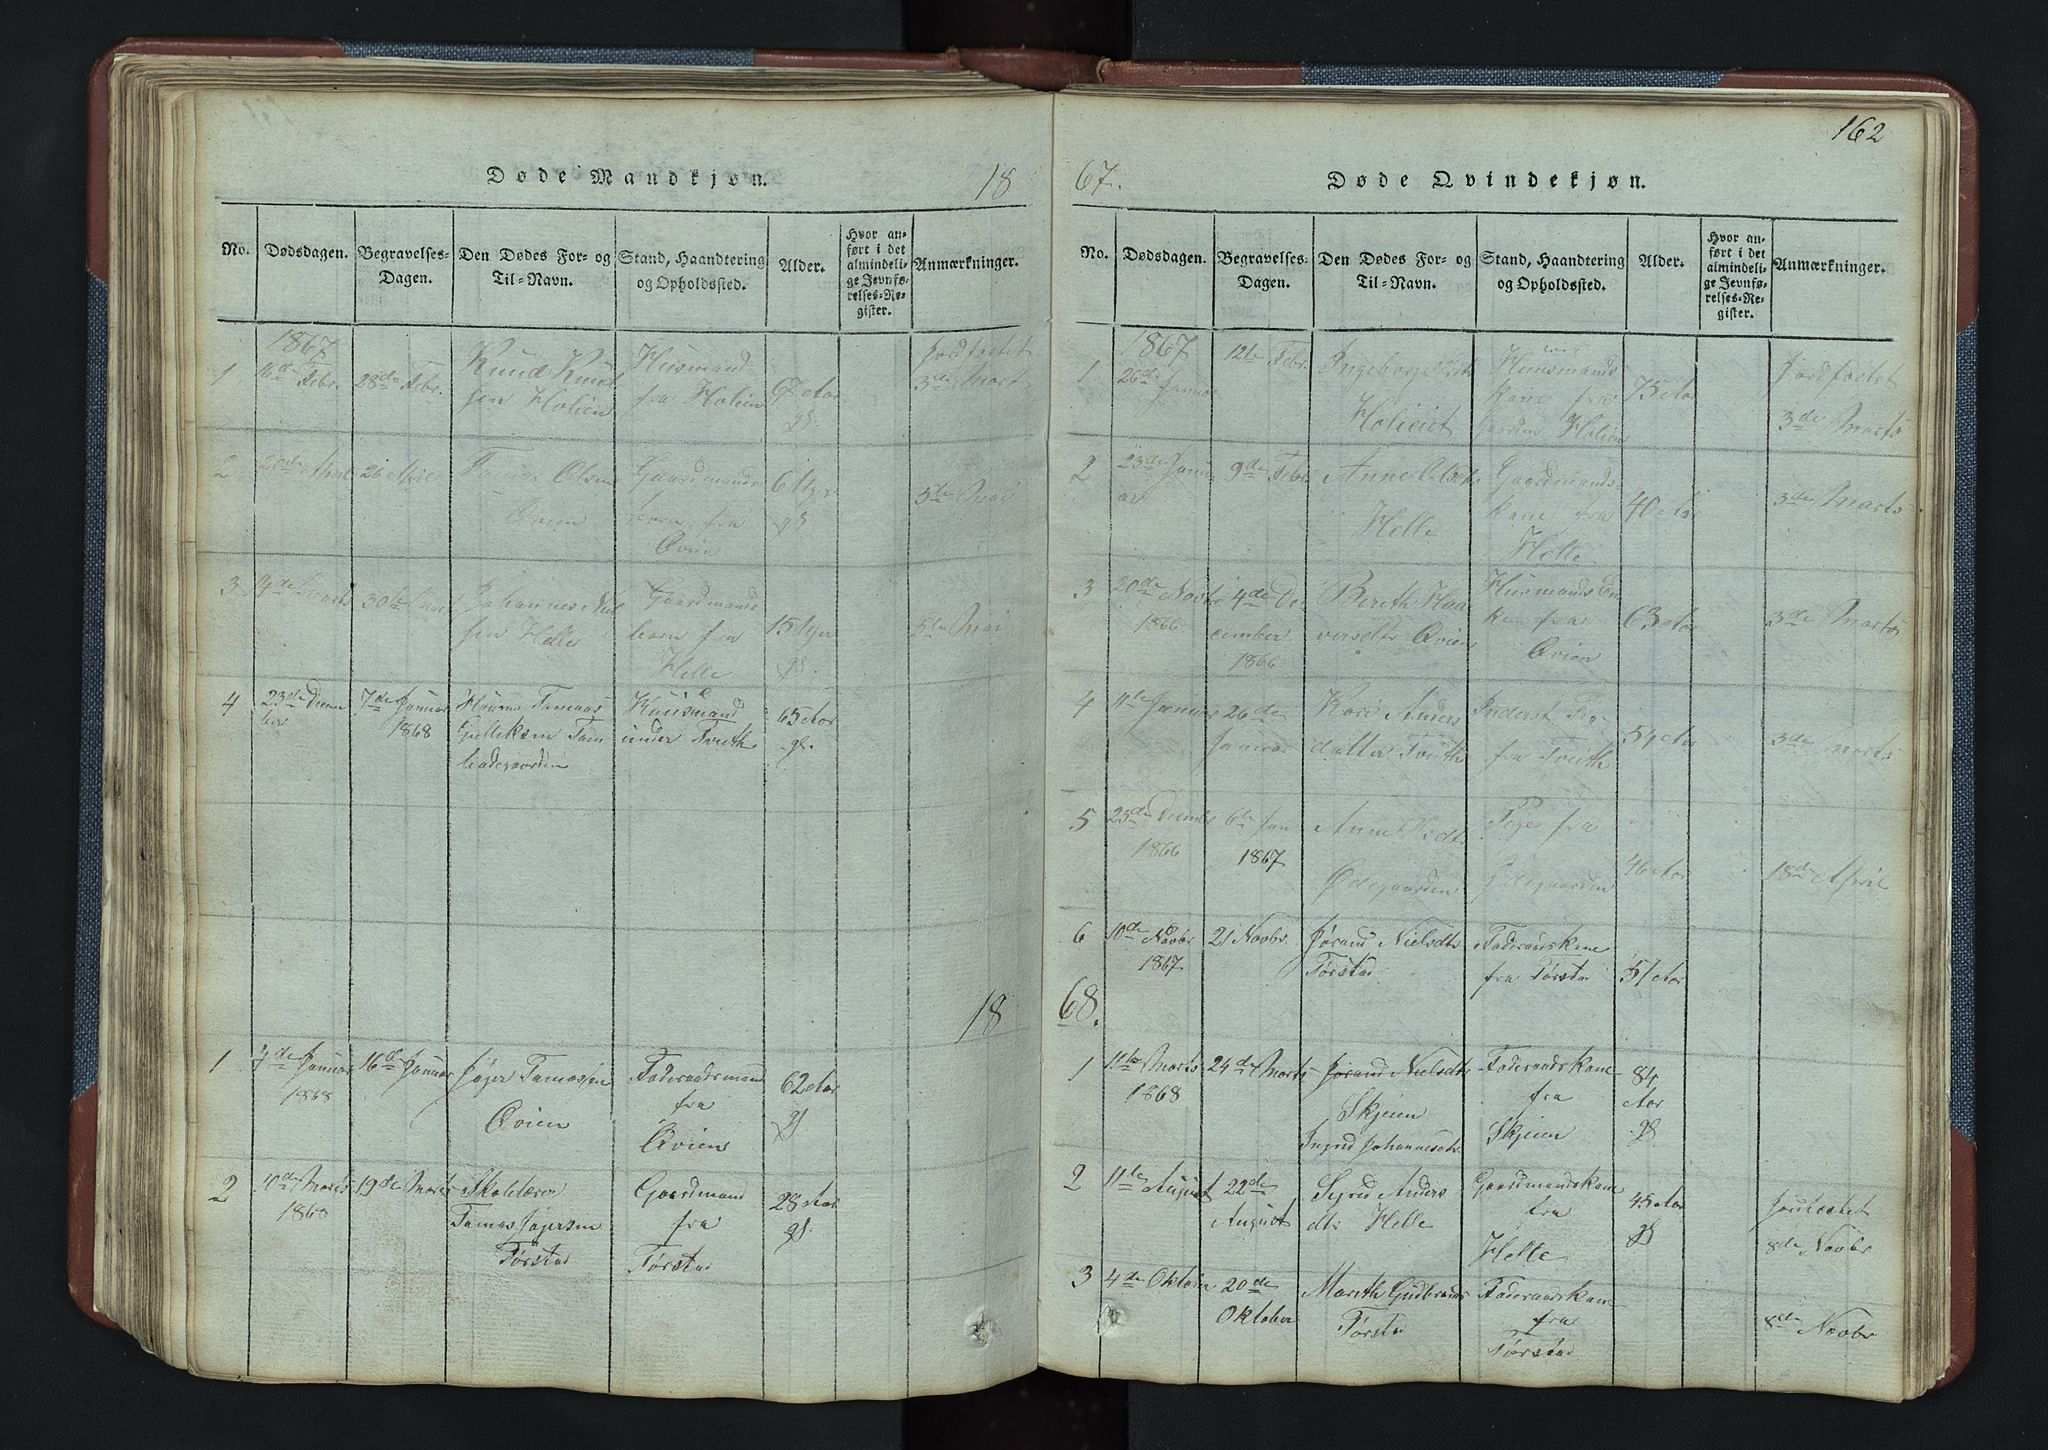 162
Døde Mandkjøn.
18
67.
Døde Qvindekjøn.
No.
Dødsdagen.
Begravelses-
Dagen.
Den Dødes For- og
Til-Navn.
Stand, Haandtering
og Opholdssted.
Alder.
Hvor an-
ført i det
almindeli-
ge Jevnfø-
relses-Re-
gister.
Anmærkninger.
1867
1
Febr.
28de Febr.
Knud Knud
sen Holien
Huusmand
fra Holien
Aar
gl.
Jordfæstet
3de Mart
2
20de
26 April
Olsen
Qvien
Gaardmands
barn fra
Qvien
6 Uger
gl
5te Mai
3
Marts
30te
Johannes Niel
sen Helle
Gaardmands
barn fra
Helle
15 Uger
gl.
5te Mai
4
23de Decem
ber
7de Januar
1868
Tamas
Gulleksen
Huusmand
under Tveith
65 Aar
gl.
18
1
7de Januar
1868
16de Januar
Jøger Tamassen
Qvien
Foderaadsmand
fra
Qvien
62 Aar
gl
2
10de Marts
1868
19de Marts
Skolelærer
Tamas Jøgersen
Tørstad
Gaardmand
fra
Tørstad
28 Aar
gl.
No.
Dødsdagen.
Begravelses-
Dagen.
Den Dødes For- og
Til-Navn.
Stand, Haandtering
og Opholdssted.
Alder.
Hvor an-
ført i det
almindeli-
ge Jevnfø-
relses-Re-
gister.
Anmærkninger.
1867
1
26de Januar
12te Febr.
Ingeborg
Holieiet
Huusmands
kone fra
Holien
75 Aar
Jordfæstet
3de Marts
2
23de Janu
ar
9de Febr.
Anne Olsdtr
Helle
Gaardmands
kone fra
Helle
40 Aar
3de Marts
3
20de Novbr
1866
4de De-
cember
1866
Bereth Haa
versdtr Qvien
Huusmandsen
ke fra
Qvien
63 Aar
3de Marts
4
11te Januar
26de
Januar
Kari Anders
datter Tveith
Inderst Pige
fra Tveith
54 Aar
3de Marts
5
23de Decembr
1866
6te Jan
1867
Anne
Ødegaarden
Pige fra
Ødegaarden
46 Aar
18de April
6
10de Novbr
1867
21 Novbr.
Jørand Nielsdtr
Tørstad
Foderaadskone
fra Tørstad
51 Aar
68.
1
11te Marts
1868
24de Marts
Jørand Nielsdtr
Skjeien
Ingrid Johannesdtr.
Foderaadskone
fra
Skjeien
84
Aar
gl
2
11te August
22de
August
Sigrid Anders
dtr Helle
Gaardmandskone
fra
Helle
45 Aar
gl
Jordfæstet
8de Novbr
3
4de Oktober
20de
Oktober
Mareth Gudbrands
Tørstad
Foderaadskone
fra
Tørstad
8de Novbr